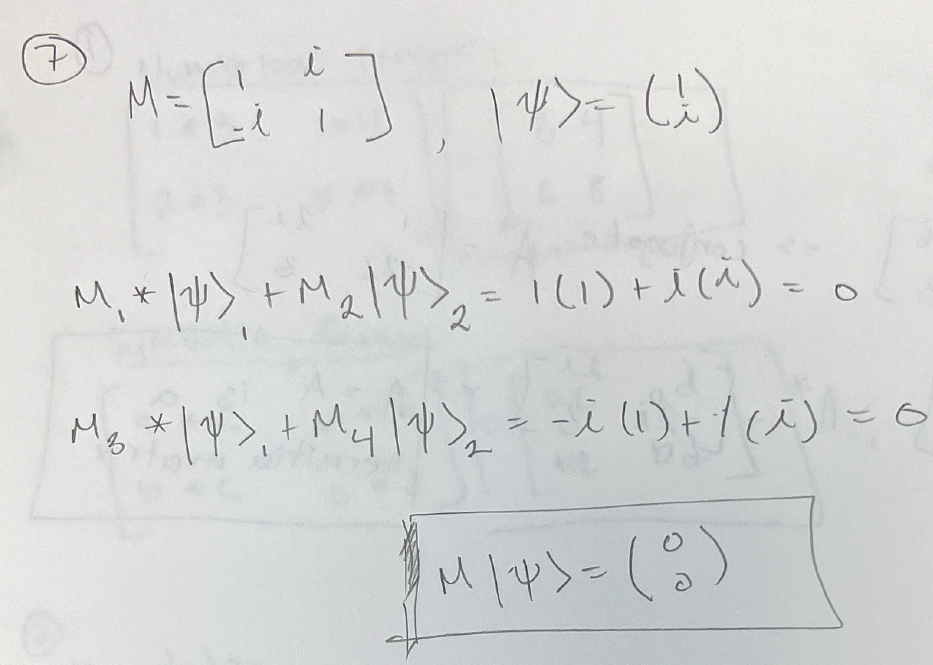 7
M = [1 i
-i 1] , |ψ> = (1
i)
M₁ * |ψ>₁ + M₂ |ψ>₂ = 1(1) + i(i) = 0
M₃ * |ψ>₁ + M₄ |ψ>₂ = -i(1) + 1(i) = 0
M|ψ> = (0
0)